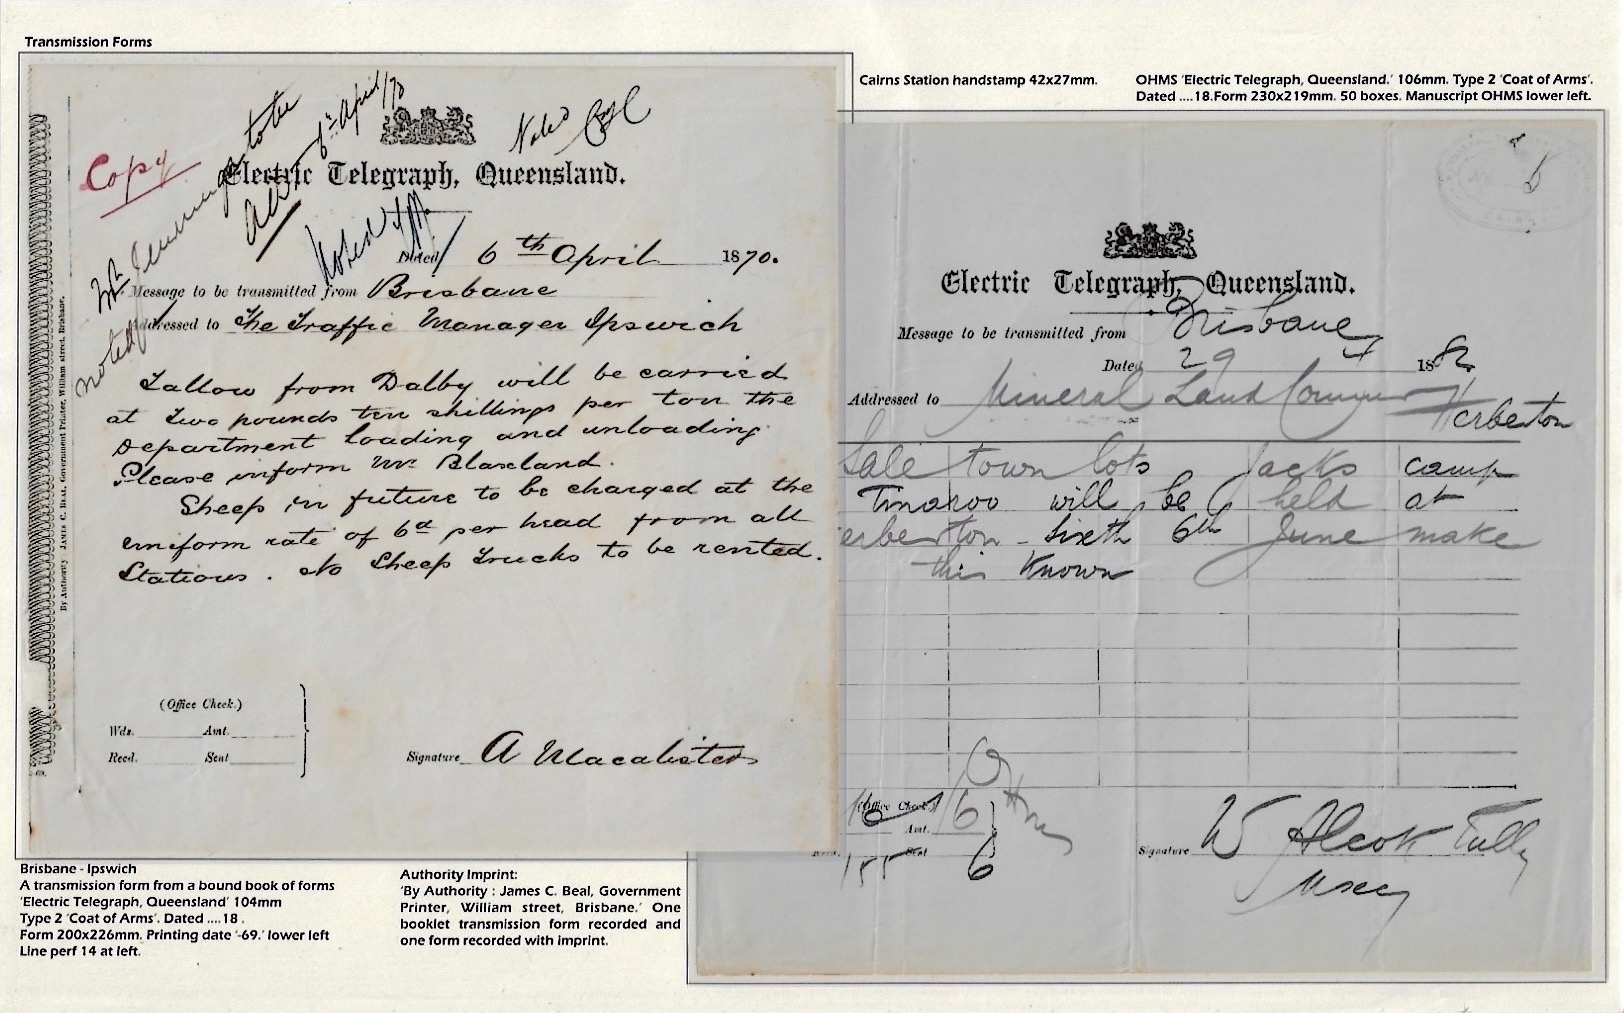 Transmission Forms
Cairns Station handstamp 42x27mm.
OHMS 'Electric Telegraph, Queensland.' 106mm. Type 2 'Coat of Arms'.
Dated ....18.Form 230x219mm. 50 boxes. Manuscript OHMS lower left.
Copy
to be
6th April/70
Noted
Electric Telegraph, Queensland.
Noted
Dated 6th April 1870.
Message to be transmitted from Brisbane
Addressed to The Traffic Manager Ipswich
noted
Tallow from Dalby will be carried
at two pounds ten shillings per ton the
Department loading and unloading.
Please inform Mr Blaxland.
Sheep in future to be charged at the
uniform rate of 6d per head from all
Stations. No Sheep Trucks to be rented.
(Office Check.)
Wds. Amt.
Recd. Sent
Signature A Macalister
By Authority JAMES C. BEAL, Government Printer, William street, Brisbane.
-69.
Electric Telegraph, Queensland.
Message to be transmitted from Brisbane
Dated 29 4 1882
Addressed to Mineral Land Commr Herberton
Sale town lots Jacks camp
Tinaroo will be held at
erberton - sixth 6th June make
this Known
(Office Check.)
16 Amt. 6
155 Sent 6
OHMS
Signature W Alcock Tully
CAIRNS
Brisbane - Ipswich
A transmission form from a bound book of forms
'Electric Telegraph, Queensland' 104mm
Type 2 'Coat of Arms'. Dated ....18 .
Form 200x226mm. Printing date '-69.' lower left
Line perf 14 at left.
Authority Imprint:
'By Authority : James C. Beal, Government
Printer, William street, Brisbane.' One
booklet transmission form recorded and
one form recorded with imprint.